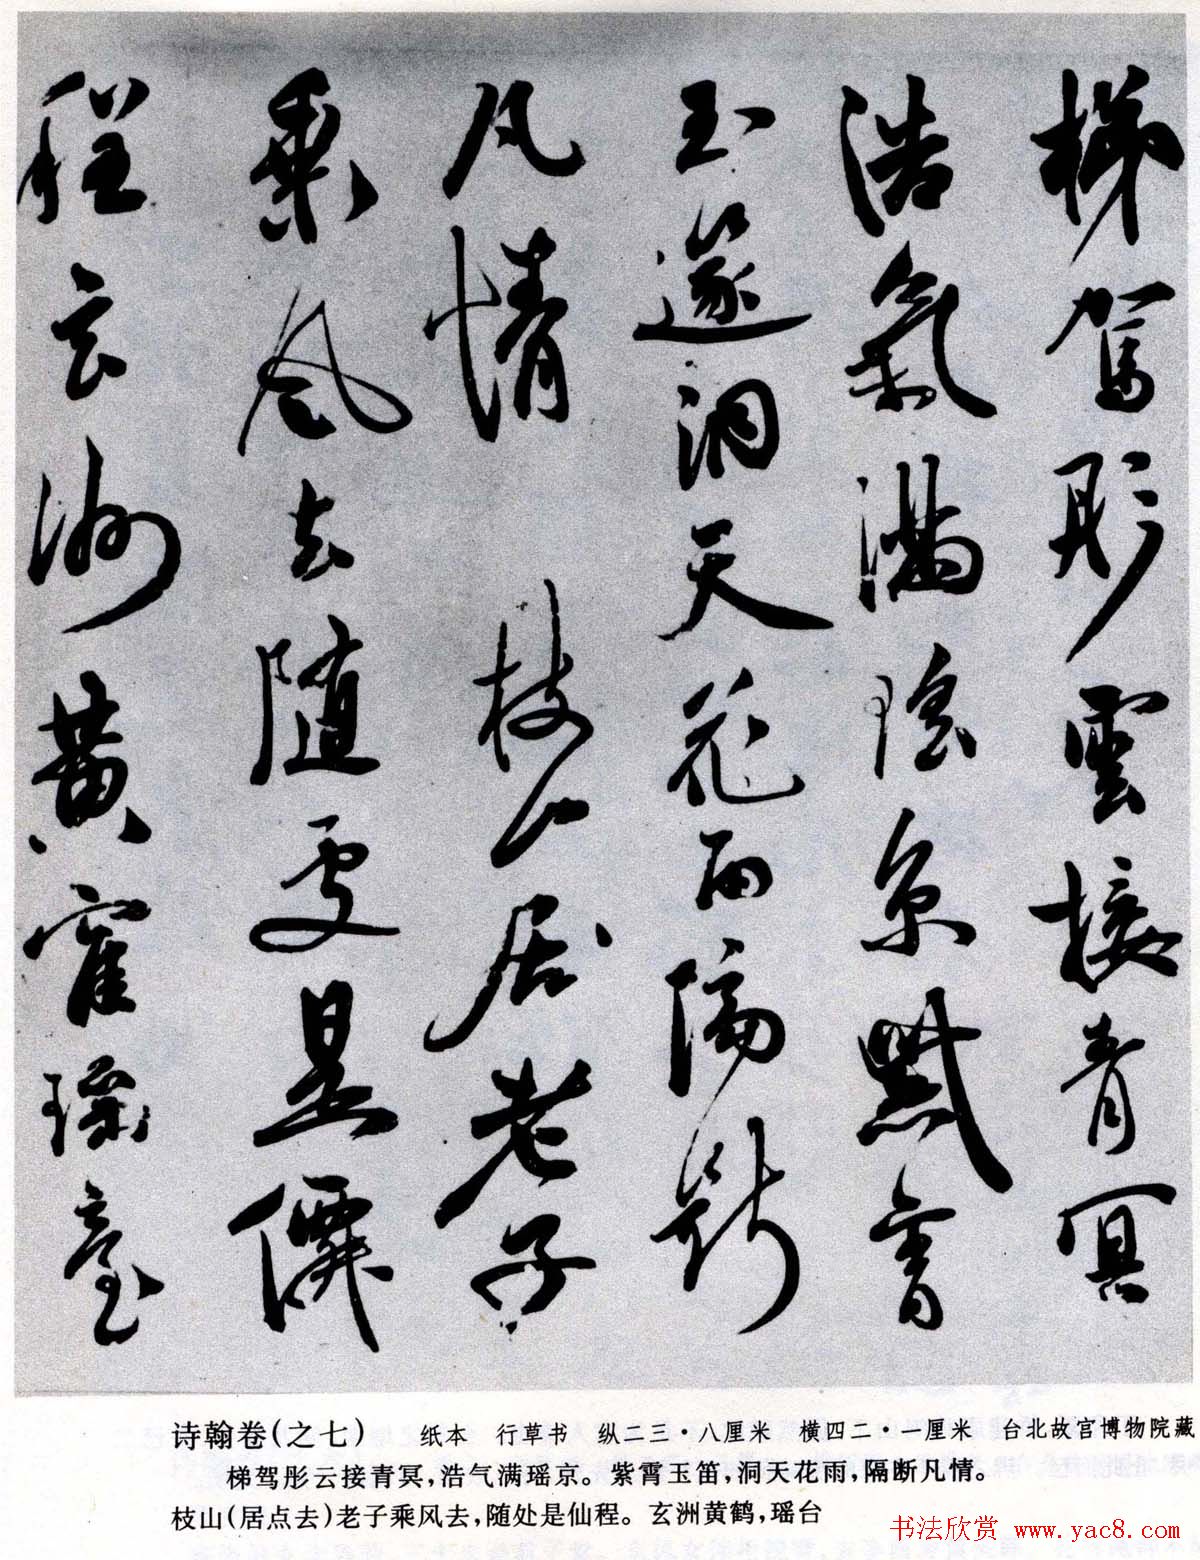 梯駕彤雲接青冥
浩氣滿瑤京紫霄
玉篴洞天花雨隔斷
凡情 枝山居老子
乘風去随處是僊
程玄洲黄寉瑤臺
诗翰卷(之七) 纸本 行草书 纵二三·八厘米 横四二·一厘米 台北故宫博物院藏
梯驾彤云接青冥,浩气满瑶京。紫霄玉笛,洞天花雨,隔断凡情。
枝山(居点去)老子乘风去,随处是仙程。玄洲黄鹤,瑶台
书法欣赏 www.yac8.com